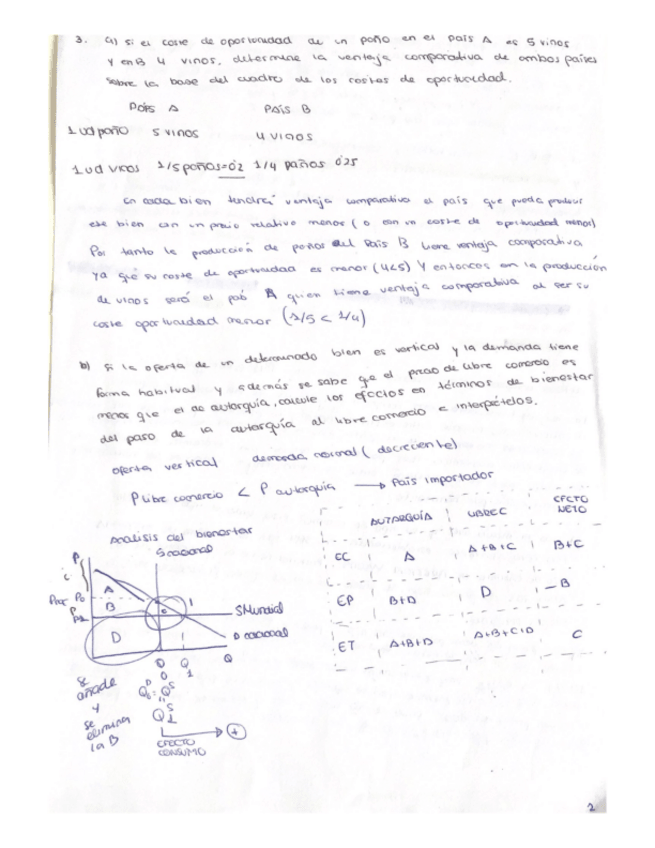 3. a) si el coste de oportunidad de un paño en el país A es 5 vinos
y en B 4 vinos, determine la ventaja comparativa de ambos países
sobre la base del cuadro de los costes de oportunidad.
País A País B
1 ud paño 5 vinos 4 vinos
1 ud vinos 1/5 paños=0'2 1/4 paños 0'25
En cada bien tendrá ventaja comparativa el país que pueda producir
ese bien con un precio relativo menor (o con un coste de oportunidad menor)
Por tanto la producción de paños del País B tiene ventaja comparativa
ya que su coste de oportunidad es menor (4<5) y entonces en la producción
de vinos será el país A quien tiene ventaja comparativa al ser su
coste oportunidad menor (1/5 < 1/4)
b) Si la oferta de un determinado bien es vertical y la demanda tiene
forma habitual y además se sabe que el precio de libre comercio es
menos que el de autarquía, calcule los efectos en términos de bienestar
del paso de la autarquía al libre comercio e interprételos.
oferta vertical demanda normal (decreciente)
P libre comercio < P autarquía → País importador
Análisis del bienestar
S nacional
P
A
B
D
S Mundial
D nacional
Q
AUTARQUÍA LIBREC EFECTO NETO
EC A A+B+C B+C
EP B+D D -B
ET A+B+D A+B+C+D C
se añade
y
se
elimina
la B
EFECTO
CONSUMO
+
2